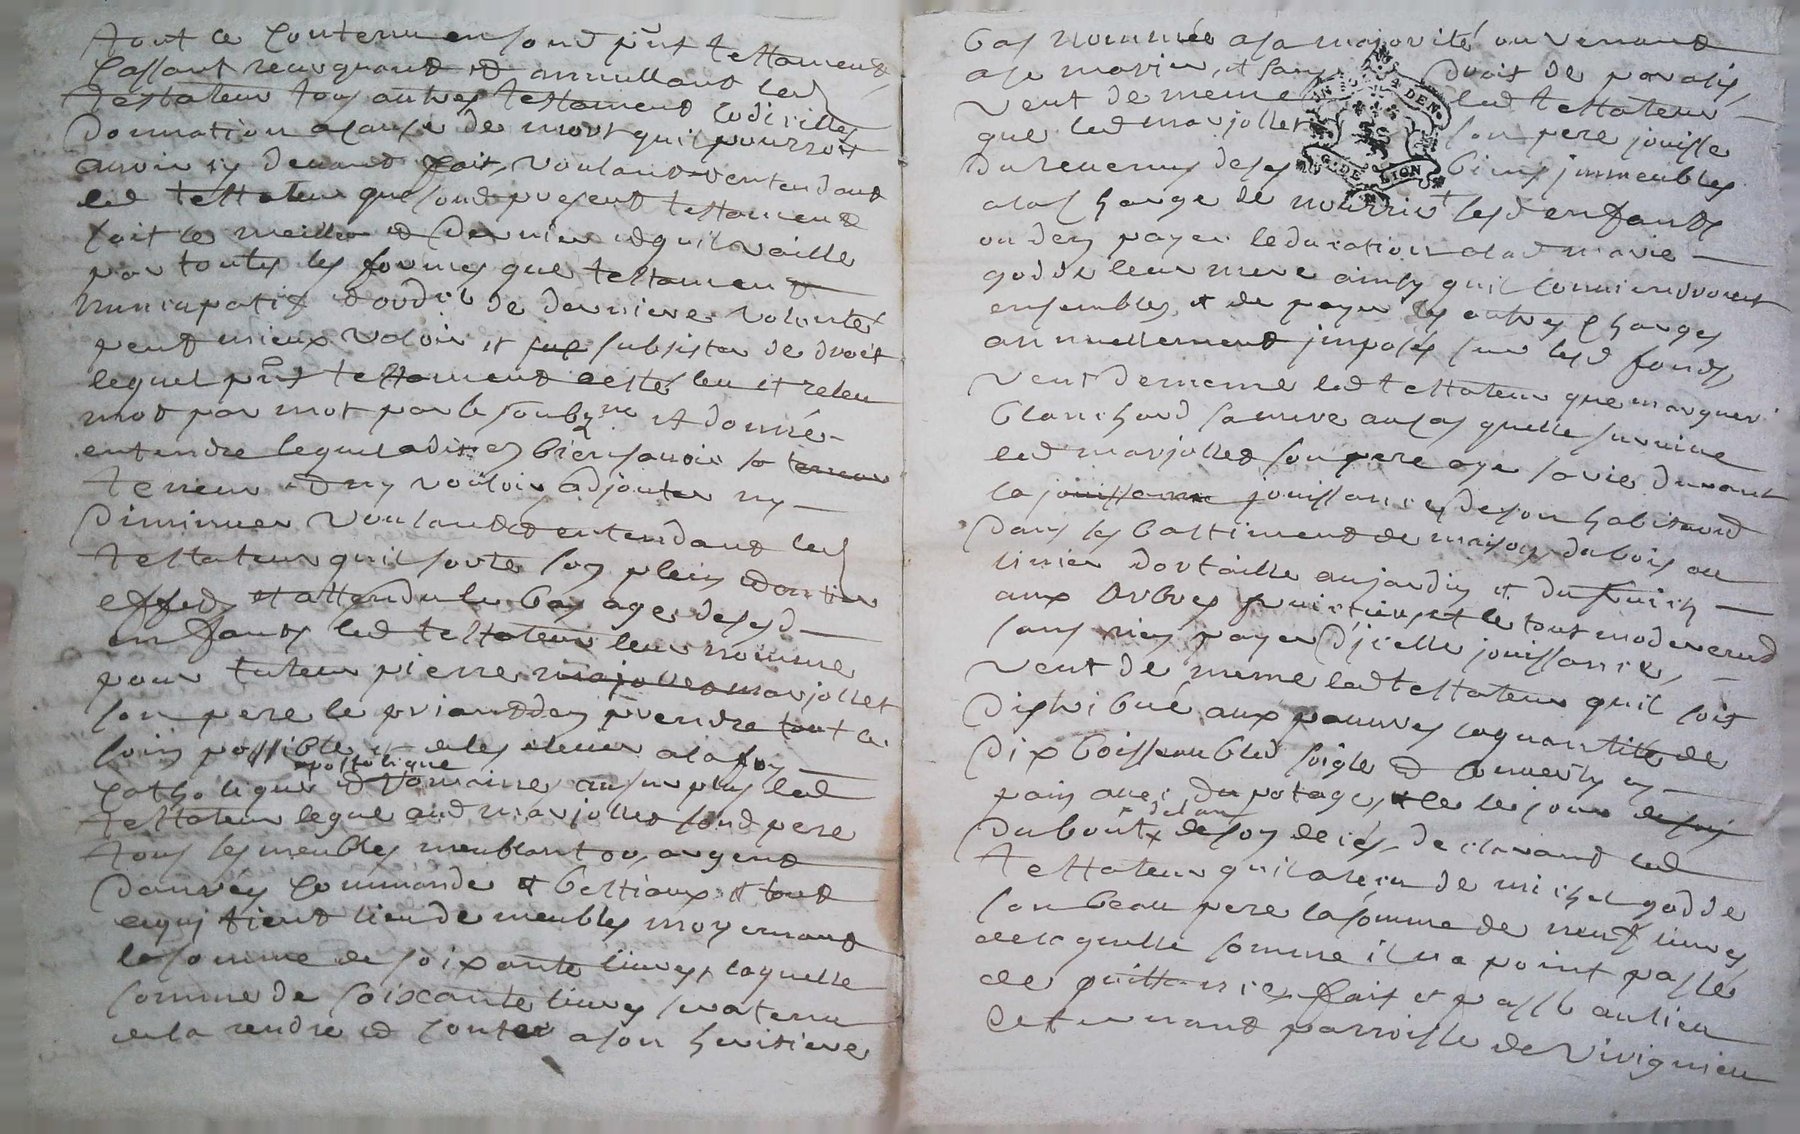 tout ce contenu en sond pnt testament
Cassant revoquant et annullant led
testateur tous autres testament codicilles
donnation a cause de mort quil pourroit
avoir cy devant fait, voulant entendant
led testateur que sond present testament
soit le meilleur et dernier et quil vaille
par toutes les formes que testament
nuncupatif et de derniere volonté
peut mieux valoir et subsister de droit
lequel pnt testament a esté leu et releu
mot par mot par le soubzne et donné
entendre lequel a dit bien savoir sa teneur
teneur et ny vouloir adjouter ny
diminuer voulant et entendant led
testateur quil sorte son plein et entier
effect et attendu le bas age desesd
enfants led testateur leur nomme
pour tuteur pierre marjollet marjollet
son pere le priant den prendre tout le
soin possible et de les elever a la foy
apostolique
catholique et romaine, au surplus led
testateur legue aud marjollet sond pere
tous les meubles meublant or, argent
danrées commande et bestiaux et tout
ce qui tient lieu de meubles moyenant
la somme de soixante livres, laquelle
somme de soixante livres sera tenu
de la rendre et conter a son heritiere
bas nommée a sa majorité ou venant
a se marier, et sans droit de
veut de meme led testateur
que led marjollet son pere jouisse
du revenus de ses biens jmmeubles
a la charge de nourrir lesd enfants
ou den payer leducation a lad marie
godde leur mere ainsy quil conviendront
ensembles, et de payer les autres charges
annuellement jmposés sur lesd fonds,
veut de meme led testateur que marguerit
blanchard sa mere au cas quelle survive
led marjollet son pere aye sa vie durant
la jouissance jouissance de son habitaond
dans les battiment de maison du bois au
limier dortaille au jardin et du fruich
aux arbres fruictiers et le tout moderement
sans rien payer djcelle jouissance,
veut de meme led testateur quil soit
distribué aux pauvres la quantité de
dix boisseau bled soigle et converty en
pain avec du potage, et ce le jour de son
de lan
du bout de son deces, declarant led
testateur quil a receu de michel godde
son beau pere la somme de neuf livres
de laquelle somme il na point passé
de quittance, fait et passé au lieu
paroisse de Vivignieu
GNDE LION